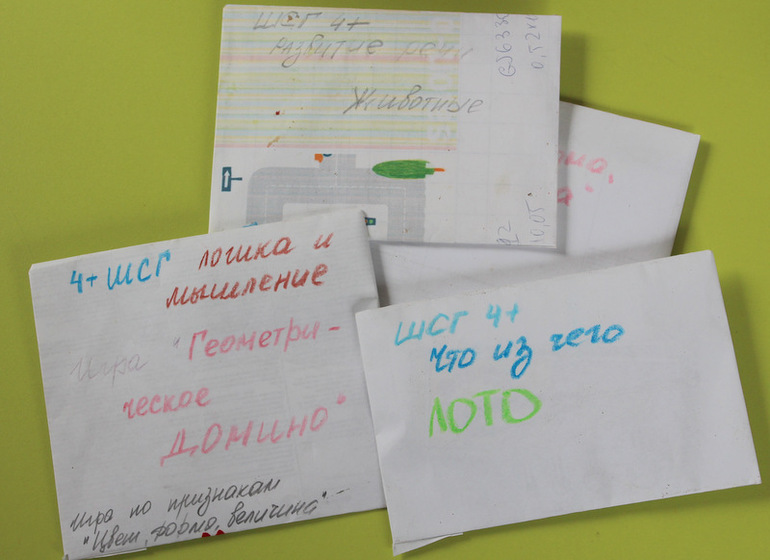 ШСГ 4+
развитие речи
Животные
0,52
10,05
4+ ШСГ логика и
мышление
Игра "Геометри-
ческое
ДОМИНО"
Игра по признакам
"Цвет, форма, величина"-
ШСГ 4+
Что из чего
ЛОТО